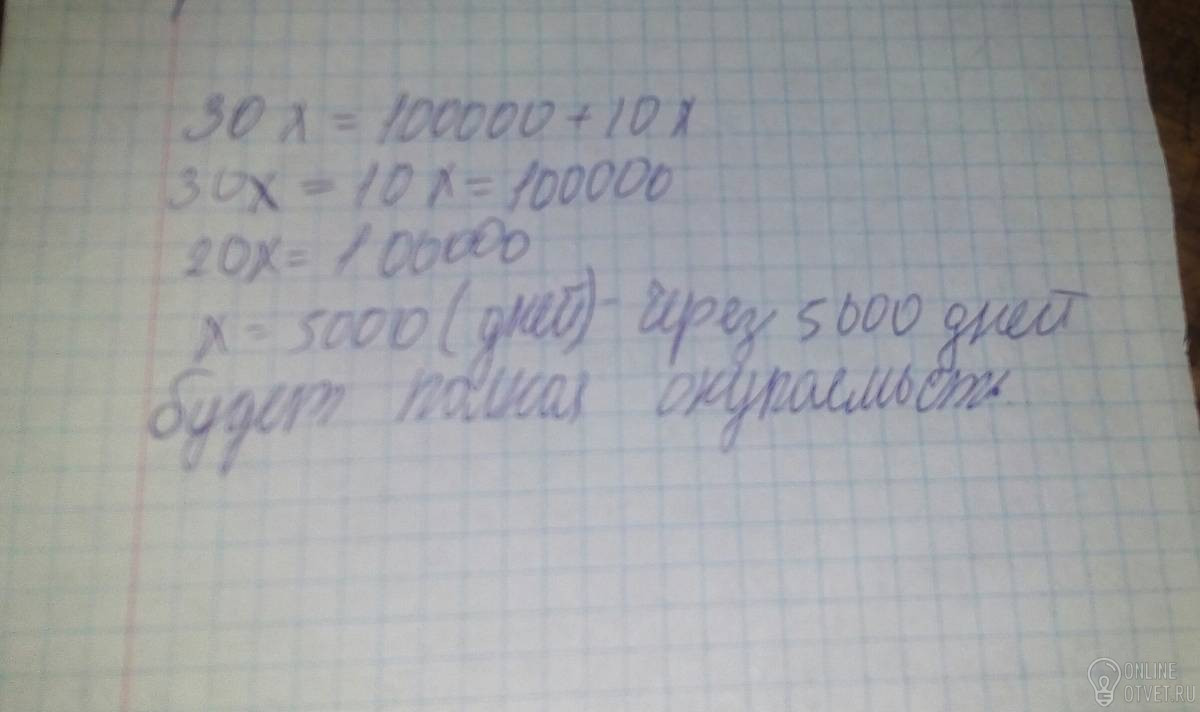 30 x = 100000 + 10 x
30x = 10 x = 100000
20x = 100000
x = 5000 (дней) - через 5000 дней
будет полная окупаемость.
ONLINE
OTVET.RU